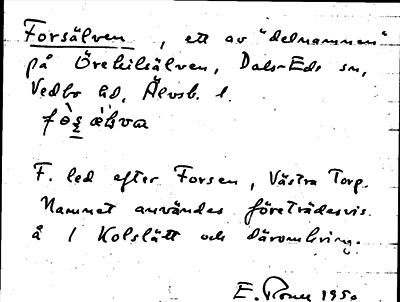 Forsälven, ett av "delnamnen"
på Örekilsälven, Dals-Eds sn,
Vedbo hd, Älvsb. l.
F. led efter Forsen, Västra Torp.
Namnet användes företrädesvis
å / Kolslätt och däromkring.
E. 1950